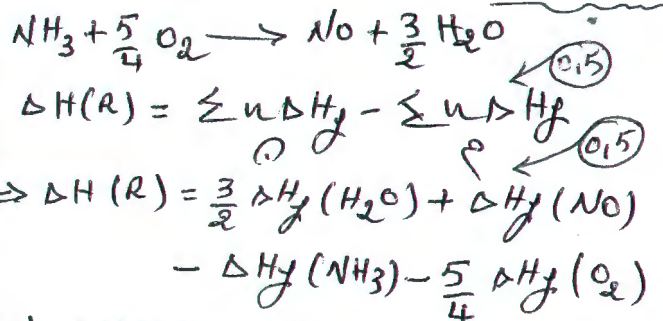 NH₃ + 5/4 O₂ → NO + 3/2 H₂O
0,5
ΔH(R) = Σ n ΔHf - Σ n Δ Hf
0,5
⇒ ΔH (R) = 3/2 ΔHf (H₂O) + ΔHf (NO)
- ΔHf (NH₃) - 5/4 ΔHf (O₂)